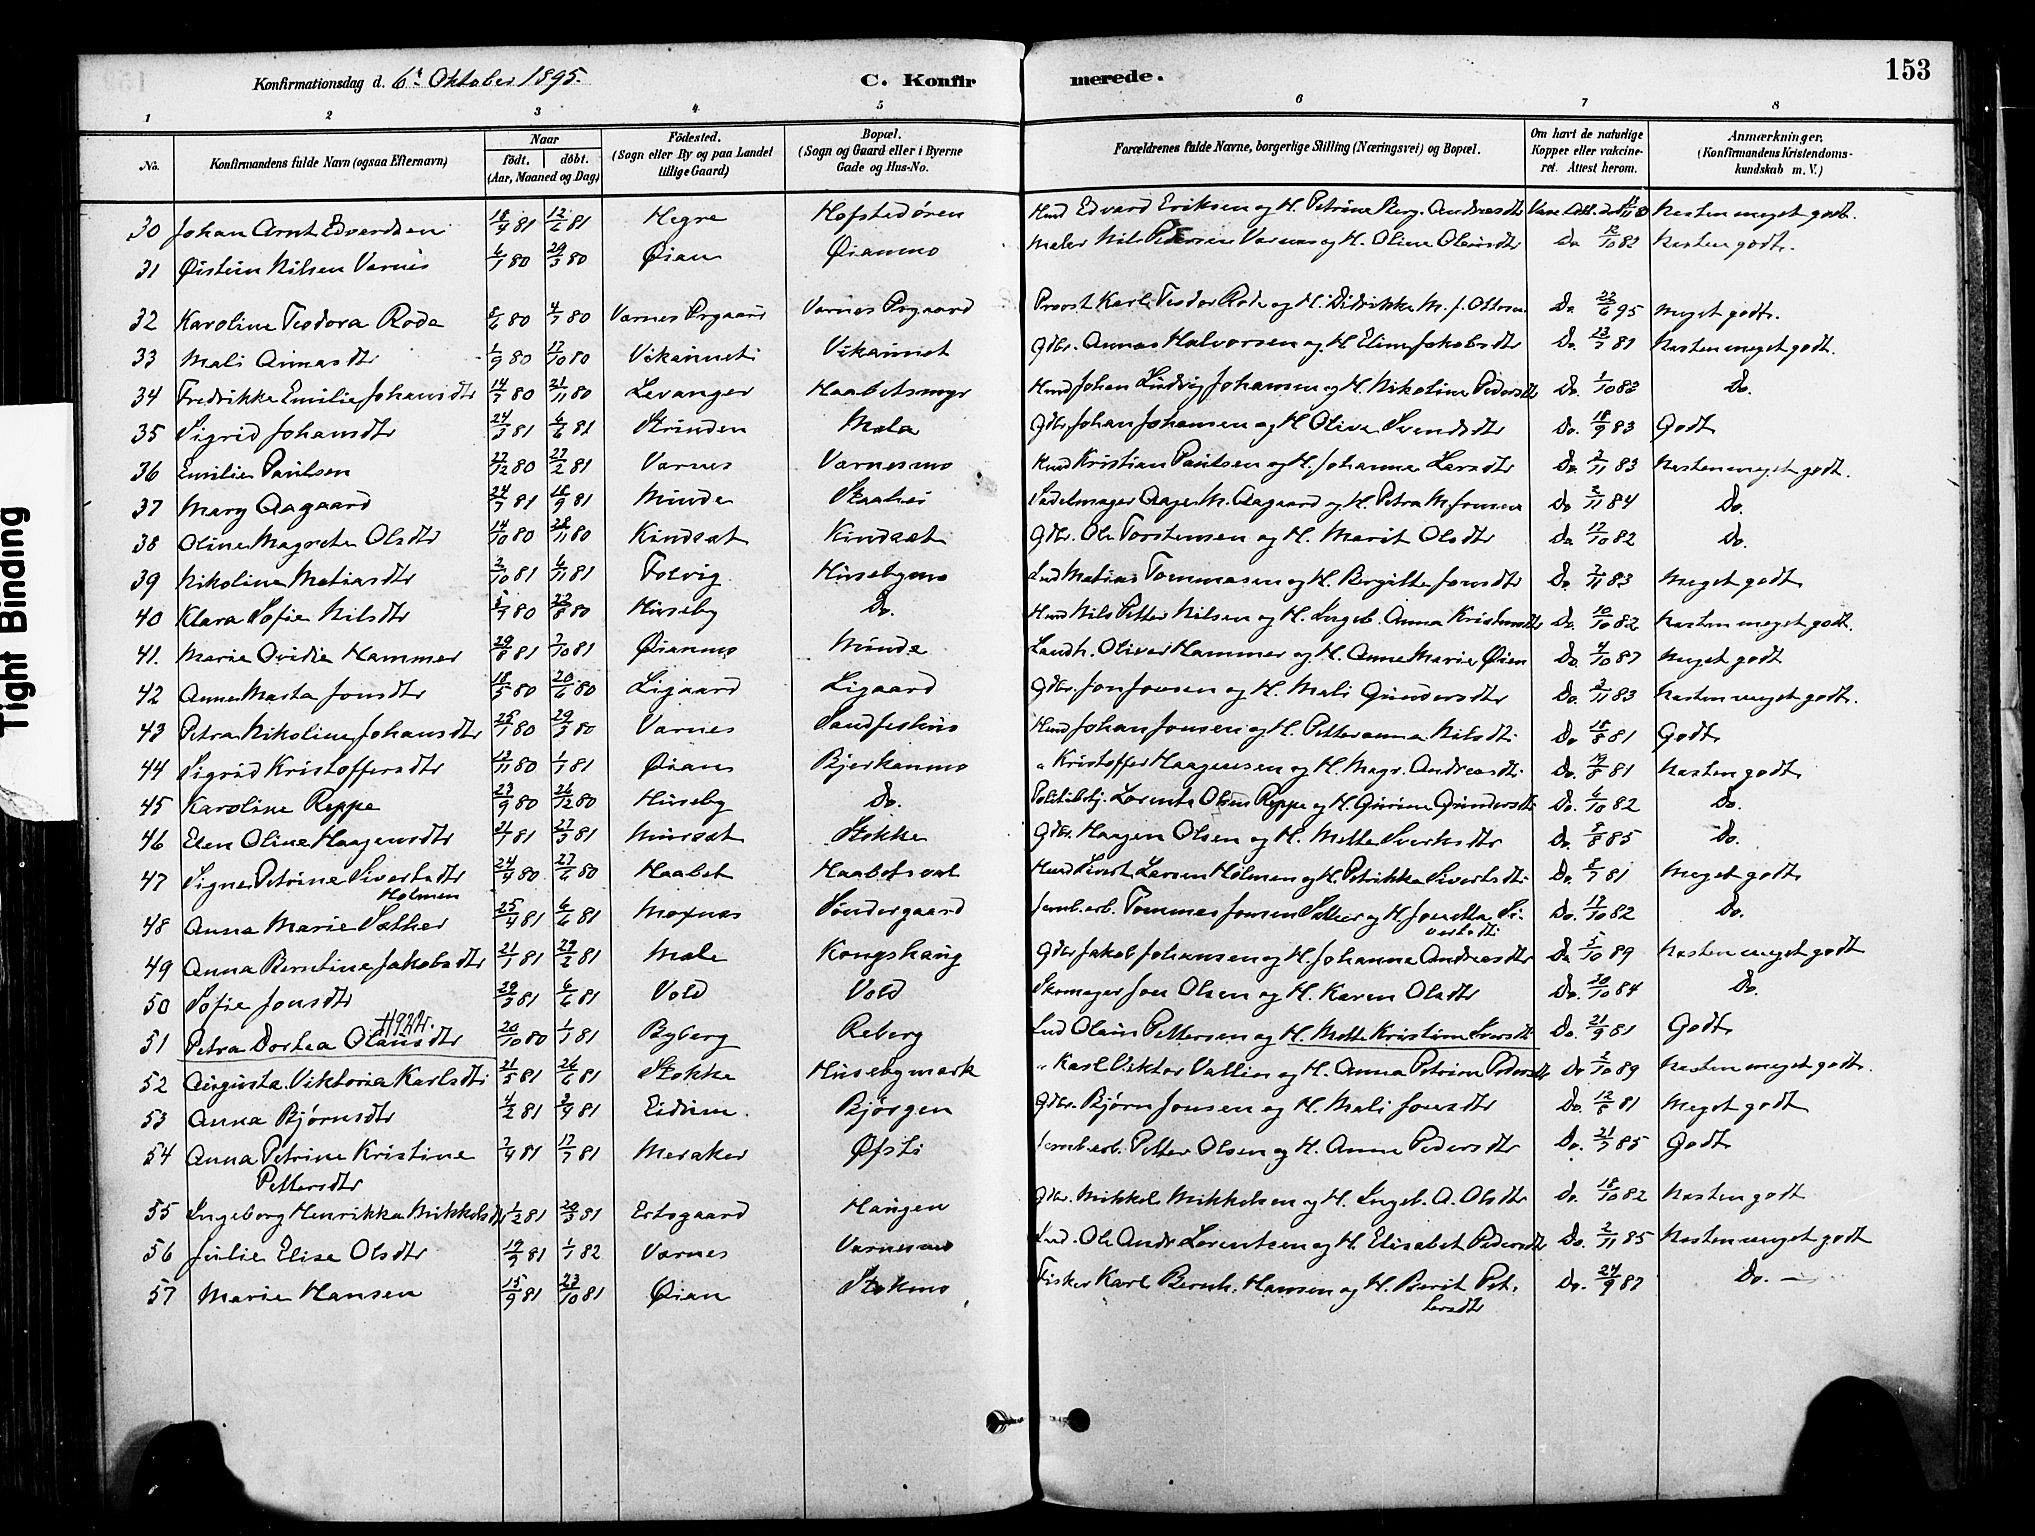 Tight Binding
Konfirmationsdag d. 6te Oktober 1895.
C. Konfirmerede.
153
1 2 3 4 5 6 7 8
No.
Konfirmandens fulde Navn (ogsaa Efternavn)
Naar
født. døbt.
(Aar, Maaned og Dag)
Fødested.
(Sogn eller By og paa Landet tillige Gaard)
Bopæl.
(Sogn og Gaard eller i Byerne Gade og Hus-No.
Forældrenes fulde Navne, borgerlige Stilling (Næringsvei) og Bopæl.
Om havt de naturlige Kopper eller vakcineret. Attest herom.
Anmærkninger,
(Konfirmandens Kristendomskundskab m. V.)
30 Johan Arnt Edvardsen 18/4 81 12/6 81 Hegre Hofstedøren Edvard Eriksen og H. Petrine Berg. Andreasdtr Næsten meget godt.
31 Øistein Nilsen Værnes 6/1 80 29/3 80 Øian Øianmo Maler Nils Pedersen Værnes og H. Oline Do. 12/10 82 Næsten godt.
32 Karoline Teodora Rode 2/6 80 4/7 80 Værnes Prgaard Værnes Prgaard Provst Karl Teodor Rode og H. Didrikke M. f. Ottesen Do. 22/6 95 Meget godt.
33 Mali Annasdtr 1/9 80 17/10 80 Vikannet Vikannet Gbr. Annas Halvorsen og H. Elen Jakobsdtr Do. 13/7 81 Næsten meget godt.
34 Fredrikke Emilie Johansdtr 14/7 80 21/11 80 Levanger Haabetsmyr Johan Ludvig Johansen og H. Nikoline Pedersdtr Do. 1/10 83 Do.
35 Sigrid Johansdtr 24/3 81 6/6 81 Strinden Mæla Gbr. Johan Johansen og H. Olive Svendsdtr Do. 18/9 83 Godt
36 Emilie Paulsen 27/12 80 27/2 81 Værnes Værnesmo Kristian Paulsen og H. Johanna Larsdtr Do. 2/11 83 Næsten meget godt.
37 Mary Aagaard 24/7 81 18/9 81 Minde Sadelmager Aage M. Aagaard og H. Petra M. Do. 2/11 84 Do.
38 Oline Magrete Olsdtr 14/10 80 28/11 80 Kindsæt Kindsæt Gbr. Ole Torstensen og H. Marit Olsdtr Do. 12/10 82 Do.
39 Nikoline Matiasdtr 2/10 81 6/11 81 Folvig Husebymo Ind Matias Tommasen og H. Bergitte Jonsdtr Do. 7/11 83 Meget godt
40 Klara Sofie Nilsdtr 5/7 80 22/8 80 Huseby Do. Nils Petter Nilsen og H. Ingeb. Anna Do. 10/10 82 Næsten meget godt.
41. Marie Ovidie Hammer 29/8 81 7/10 81 Øianmo Minde Landh. Oliver Hammer og H. Anne Marie Øien Do. 4/10 87 Meget godt
42 Anne Marta Jonsdtr 18/5 80 20/6 80 Ligaard Ligaard Gbr. Jon Jonsen og H. Mali Gundersdtr Do. 2/11 83 Næsten meget godt.
43 Petra Nikoline Johansdtr 29/3 80 Værnes Johan Jonsen og H. Petteranna Nilsdtr Do. 18/8 81 Godt
44 Sigrid Kristoffersdtr 13/11 80 1/1 81 Øian Bjerkanmo " Kristoffer Haagensen og H. Magr. Andreasdtr Do. 81 Næsten godt
45 Karoline Reppe 23/9 80 26/12 80 Huseby Do. Politibetj. Lorents Olsen Reppe og H. Gurine Gundersdtr Do. 6/10 82 Do.
46 Elen Oline Haagensdtr 21/1 81 27/3 81 Stokke Gbr. Haagen Olsen og H. Mette Do. 85 Do.
47 Signe Petrine Sivertsdtr Holmen 24/4 80 27/6 80 Haabet Haabetsvat Sivert Larsen Holmen og H. Petrikke Sivertsdtr Do. 81 Meget godt
48 Anna Marie Sæther 25/4 81 6/6 81 Moxnes Søndergaard Jernb.arb. Tommas Jonsen Sæther og H. Jonetta Sivertsdtr Do. 17/10 82 Do.
49 Anna Berntine Jakobsdtr 21/1 81 27/2 81 Mæle Kongshaug Gbr. Jakob Johansen og H. Johanna Andreasdtr Do. 5/10 89 Næsten meget godt
50 Sofie Jonsdtr 29/3 81 6/6 81 Vold Vold Skomager Jon Olsen og H. Karen Olsdtr Do. 20/10 84 Do.
51 Petra Dortea Olausdtr 20/10 80 1/1 81 Byberg Reberg Ind Olaus Pettersen og H. Mette Kristine Do. 21/9 81 Godt
52 Augusta Viktoria Karlsdtr 21/5 81 26/6 81 Stokke Husebymark " Karl Viktor Vallin og H. Anna Petrine Pedersdtr Do 2/10 89 Næsten meget godt.
53 Anna Bjørnsdtr 4/2 81 3/4 81 Eidum Bjørgen Gbr. Bjørn Jonsen og H. Mali Jonsdtr Do. 81 Meget godt
54 Anna Petrine Kristine Pettersdtr 7/4 81 17/7 81 Meraker Øfsti Jernb.arb. Petter Olsen og H. Anne Pedersdtr Do. 21/7 85 Godt
55 Ingeborg Henrikka Mikkelsdtr 1/2 81 20/3 81 Ertsgaard Haugen Gbr. Mikkel Mikkelsen og H. Ingeb. O. Olsdtr Do. 18/10 82 Næsten godt
56 Julie Elise Olsdtr 19/9 81 1/1 82 Værnes Værnesmo Ind. Ole Andr. Lorentsen og H. Elisabet Pedersdtr Do. 2/11 85 Næsten meget godt
57 Marie Hansen 15/9 81 23/10 81 Øian Stokmo Fisker Karl Bernh. Hansen og H. Berit Pettersdtr Do. 24/9 87 Do.